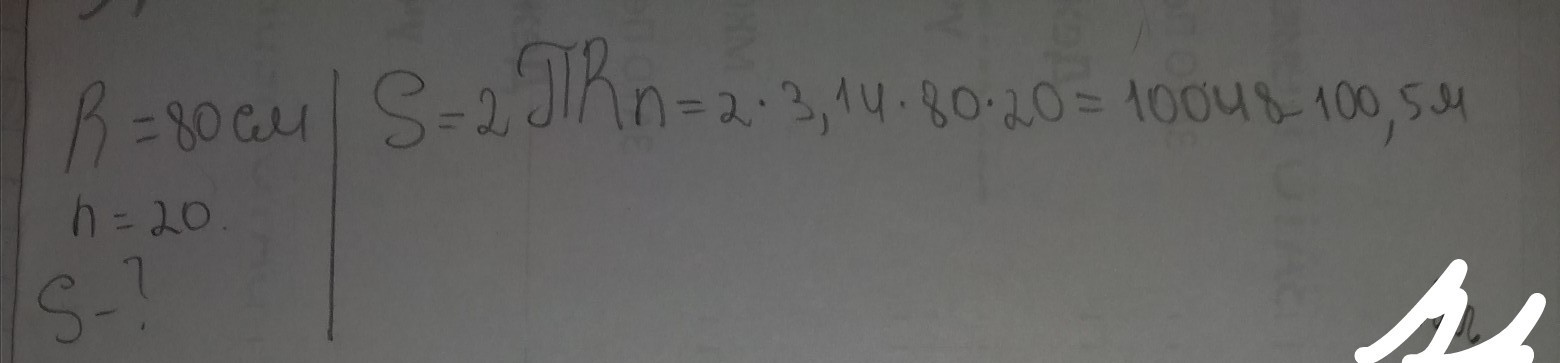 R = 80 см
n = 20.
S - ?
S = 2πRn = 2 · 3,14 · 80 · 20 = 10048 100,5 м